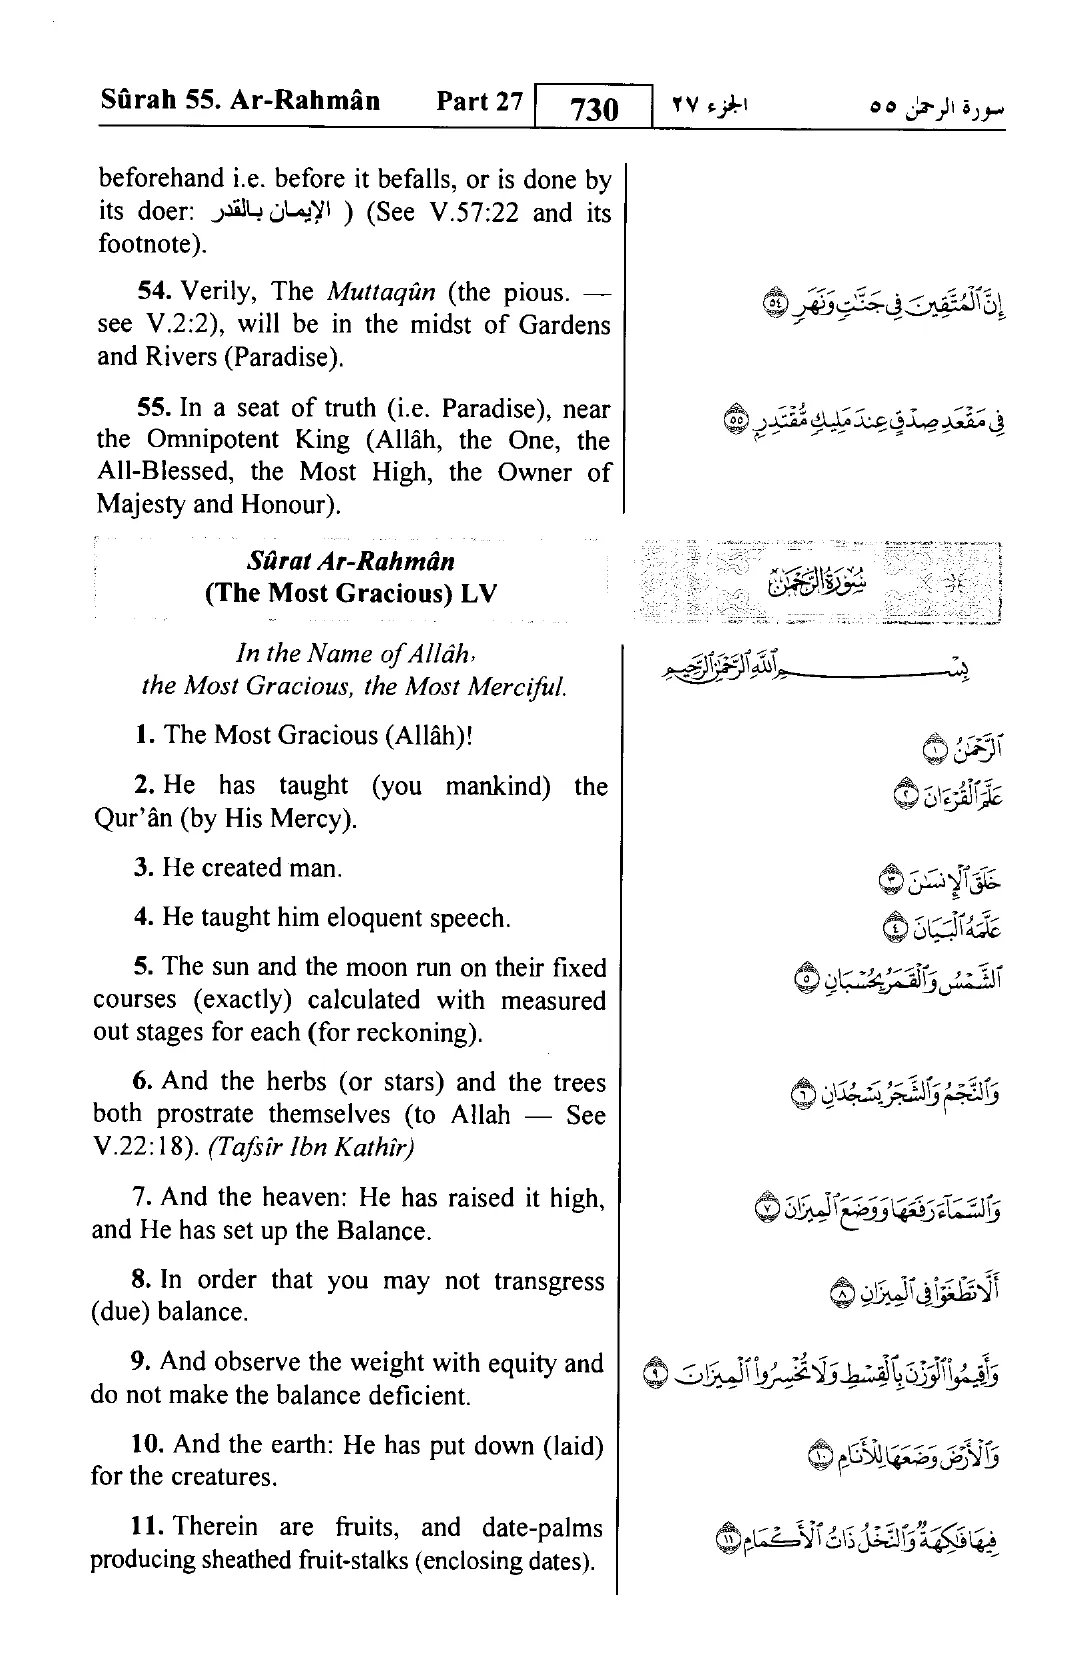 Sûrah 55. Ar-Rahmân Part 27 730 الجزء ٢٧ سورة الرحمن ٥٥
beforehand i.e. before it befalls, or is done by
its doer: الإيمان بالقدر ) (See V.57:22 and its
footnote).
54. Verily, The Muttaqûn (the pious. —
see V.2:2), will be in the midst of Gardens
and Rivers (Paradise).
إِنَّ ٱلْمُتَّقِينَ فِى جَنَّٰتٍ وَنَهَرٍ ٥٤
55. In a seat of truth (i.e. Paradise), near
the Omnipotent King (Allâh, the One, the
All-Blessed, the Most High, the Owner of
Majesty and Honour).
فِى مَقْعَدِ صِدْقٍ عِندَ مَلِيكٍ مُّقْتَدِرٍۭ ٥٥
Sûrat Ar-Rahmân
(The Most Gracious) LV
سُورَةُ الرَّحْمٰن
In the Name of Allâh,
the Most Gracious, the Most Merciful.
بِسْمِ ٱللَّهِ ٱلرَّحْمَٰنِ ٱلرَّحِيمِ
1. The Most Gracious (Allâh)!
ٱلرَّحْمَٰنُ ١
2. He has taught (you mankind) the
Qur’ân (by His Mercy).
عَلَّمَ ٱلْقُرْءَانَ ٢
3. He created man.
خَلَقَ ٱلْإِنسَٰنَ ٣
4. He taught him eloquent speech.
عَلَّمَهُ ٱلْبَيَانَ ٤
5. The sun and the moon run on their fixed
courses (exactly) calculated with measured
out stages for each (for reckoning).
ٱلشَّمْسُ وَٱلْقَمَرُ بِحُسْبَانٍ ٥
6. And the herbs (or stars) and the trees
both prostrate themselves (to Allah — See
V.22:18). (Tafsîr Ibn Kathîr)
وَٱلنَّجْمُ وَٱلشَّجَرُ يَسْجُدَانِ ٦
7. And the heaven: He has raised it high,
and He has set up the Balance.
وَٱلسَّمَآءَ رَفَعَهَا وَوَضَعَ ٱلْمِيزَانَ ٧
8. In order that you may not transgress
(due) balance.
أَلَّا تَطْغَوْا۟ فِى ٱلْمِيزَانِ ٨
9. And observe the weight with equity and
do not make the balance deficient.
وَأَقِيمُوا۟ ٱلْوَزْنَ بِٱلْقِسْطِ وَلَا تُخْسِرُوا۟ ٱلْمِيزَانَ ٩
10. And the earth: He has put down (laid)
for the creatures.
وَٱلْأَرْضَ وَضَعَهَا لِلْأَنَامِ ١٠
11. Therein are fruits, and date-palms
producing sheathed fruit-stalks (enclosing dates).
فِيهَا فَٰكِهَةٌ وَٱلنَّخْلُ ذَاتُ ٱلْأَكْمَامِ ١١